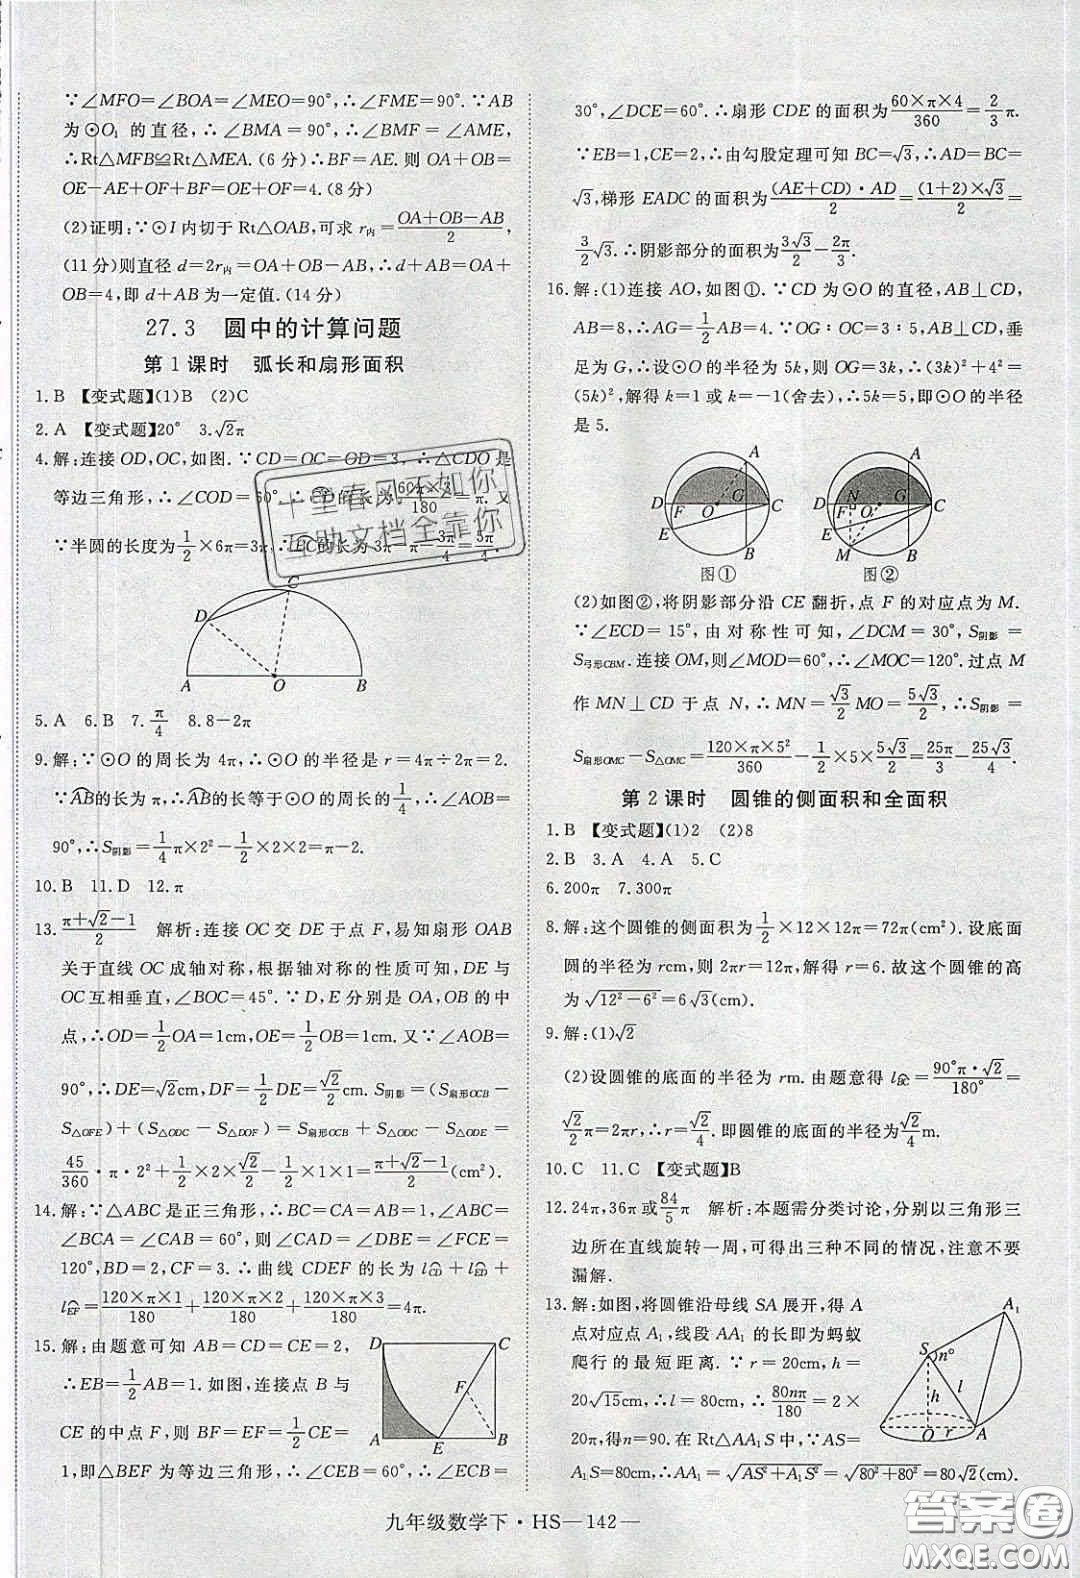 ∵∠MFO=∠BOA=∠MEO=90°,∴∠FME=90°.∵AB
为⊙O₁的直径,∴∠BMA=90°,∴∠BMF=∠AME,
∴Rt△MFB≌Rt△MEA.(6分)∴BF=AE.则OA+OB=
OE-AE+OF+BF=OE+OF=4.(8分)
(2)证明:∵⊙I内切于Rt△OAB,可求r内=(OA+OB-AB)/2,
(11分)则直径d=2r内=OA+OB-AB,∴d+AB=OA+
OB=4,即d+AB为一定值.(14分)
27.3 圆中的计算问题
第1课时 弧长和扇形面积
1.B 【变式题】(1)B (2)C
2.A 【变式题】20° 3.√2π
4.解:连接OD,OC,如图.∵CD=OC=OD=3,∴△CDO是
等边三角形,∴∠COD=60°
180=π.又
∵半圆的长度为1/2×6π=3π,
的长为3π-π-3π/4=5π/4.
C
D
A O B
5.A 6.B 7.π/4 8.8-2π
9.解:∵⊙O的周长为4π,∴⊙O的半径是r=4π÷2π=2.
∵AB的长为π,∴AB的长等于⊙O的周长的1/4,∴∠AOB=
90°,∴S阴影=1/4π×2²-1/2×2×2=π-2.
10.B 11.D 12.π
13.(π+√2-1)/2 解析:连接OC交DE于点F,易知扇形OAB
关于直线OC成轴对称,根据轴对称的性质可知,DE与
OC互相垂直,∠BOC=45°.∵D,E分别是OA,OB的中
点,∴OD=1/2OA=1cm,OE=1/2OB=1cm.又∵∠AOB=
90°,∴DE=√2cm,DF=1/2DE=√2/2cm.∴S阴影=(S扇形OCB-
S△OFE)+(S△ODC-S△DOF)=S扇形OCB+S△ODC-S△ODE=
45/360·π·2²+1/2×2×√2/2-1/2×1×1=(π+√2-1)/2(cm²).
14.解:∵△ABC是正三角形,∴BC=CA=AB=1,∠ABC=
∠BCA=∠CAB=60°,∴∠CAD=∠DBE=∠FCE=
120°,BD=2,CF=3.∴曲线CDEF的长为lCD+lED+
lEF=120×π×1/180+120×π×2/180+120×π×3/180=4π.
15.解:由题意可知AB=CD=CE=2,
∴EB=1/2AB=1.如图,连接点B与
CE的中点F,则BF=EF=1/2CE=
1,即△BEF为等边三角形,∴∠CEB=60°,∴∠ECB=
D C
F
A E B
30°,∠DCE=60°.∴扇形CDE的面积为60×π×4/360=2/3π.
∵EB=1,CE=2,∴由勾股定理可知BC=√3,∴AD=BC=
√3,梯形EADC的面积为(AE+CD)·AD/2=(1+2)×√3/2=
3/2√3.∴阴影部分的面积为3√3/2-2π/3.
16.解:(1)连接AO,如图①.∵CD为⊙O的直径,AB⊥CD,
AB=8,∴AG=1/2AB=4.∵OG∶OC=3∶5,AB⊥CD,垂
足为G,∴设⊙O的半径为5k,则OG=3k,∴(3k)²+4²=
(5k)²,解得k=1或k=-1(舍去),∴5k=5,即⊙O的半径
是5.
A
D F O G C
E
B
图①
A
N G
D F O C
E
M B
图②
(2)如图②,将阴影部分沿CE翻折,点F的对应点为M.
∵∠ECD=15°,由对称性可知,∠DCM=30°,S阴影=
S弓形CBM.连接OM,则∠MOD=60°,∴∠MOC=120°.过点M
作MN⊥CD于点N,∴MN=√3/2MO=5√3/2,∴S阴影=
S扇形OMC-S△OMC=120×π×5²/360-1/2×5×5√3/2=25π/3-25√3/4.
第2课时 圆锥的侧面积和全面积
1.B 【变式题】(1)2 (2)8
2.B 3.A 4.A 5.C
6.200π 7.300π
8.解:这个圆锥的侧面积为1/2×12×12π=72π(cm²).设底面
圆的半径为rcm,则2πr=12π,解得r=6.故这个圆锥的高
为√(12²-6²)=6√3(cm).
9.解:(1)√2
(2)设圆锥的底面的半径为rm.由题意得lBC=90°π·√2/180°=
√2/2π=2πr,∴r=√2/4.即圆锥的底面的半径为√2/4m.
10.C 11.C 【变式题】B
12.24π,36π或84/5π 解析:本题需分类讨论,分别以三角形三
边所在直线旋转一周,可得出三种不同的情况,注意不要
漏解.
13.解:如图,将圆锥沿母线SA展开,得A
点对应点A₁,线段AA₁的长即为蚂蚁
爬行的最短距离.∵r=20cm,h=
20√15cm,∴l=80cm,∴80nπ/180=2×
20π,得n=90.在Rt△AA₁S中,∵AS=
A₁S=80cm,∴AA₁=√(AS²+A₁S²)=√(80²+80²)=80√2(cm).
A₁
S n°
h l
O r A
九年级数学下·HS—142—
十里春风不如你
互助文档全靠你
答案圈
MXQE.COM